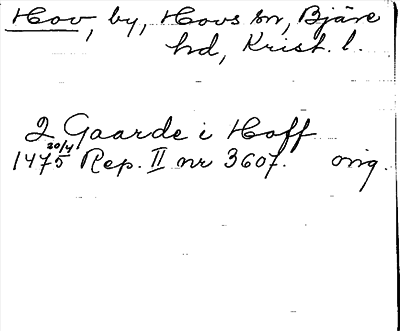 Hov, by, Hovs sn, Bjäre
hd, Krist. l.
2 Gaarde i Hoff
1475 20/4 Rep. II nr 3607. orig.